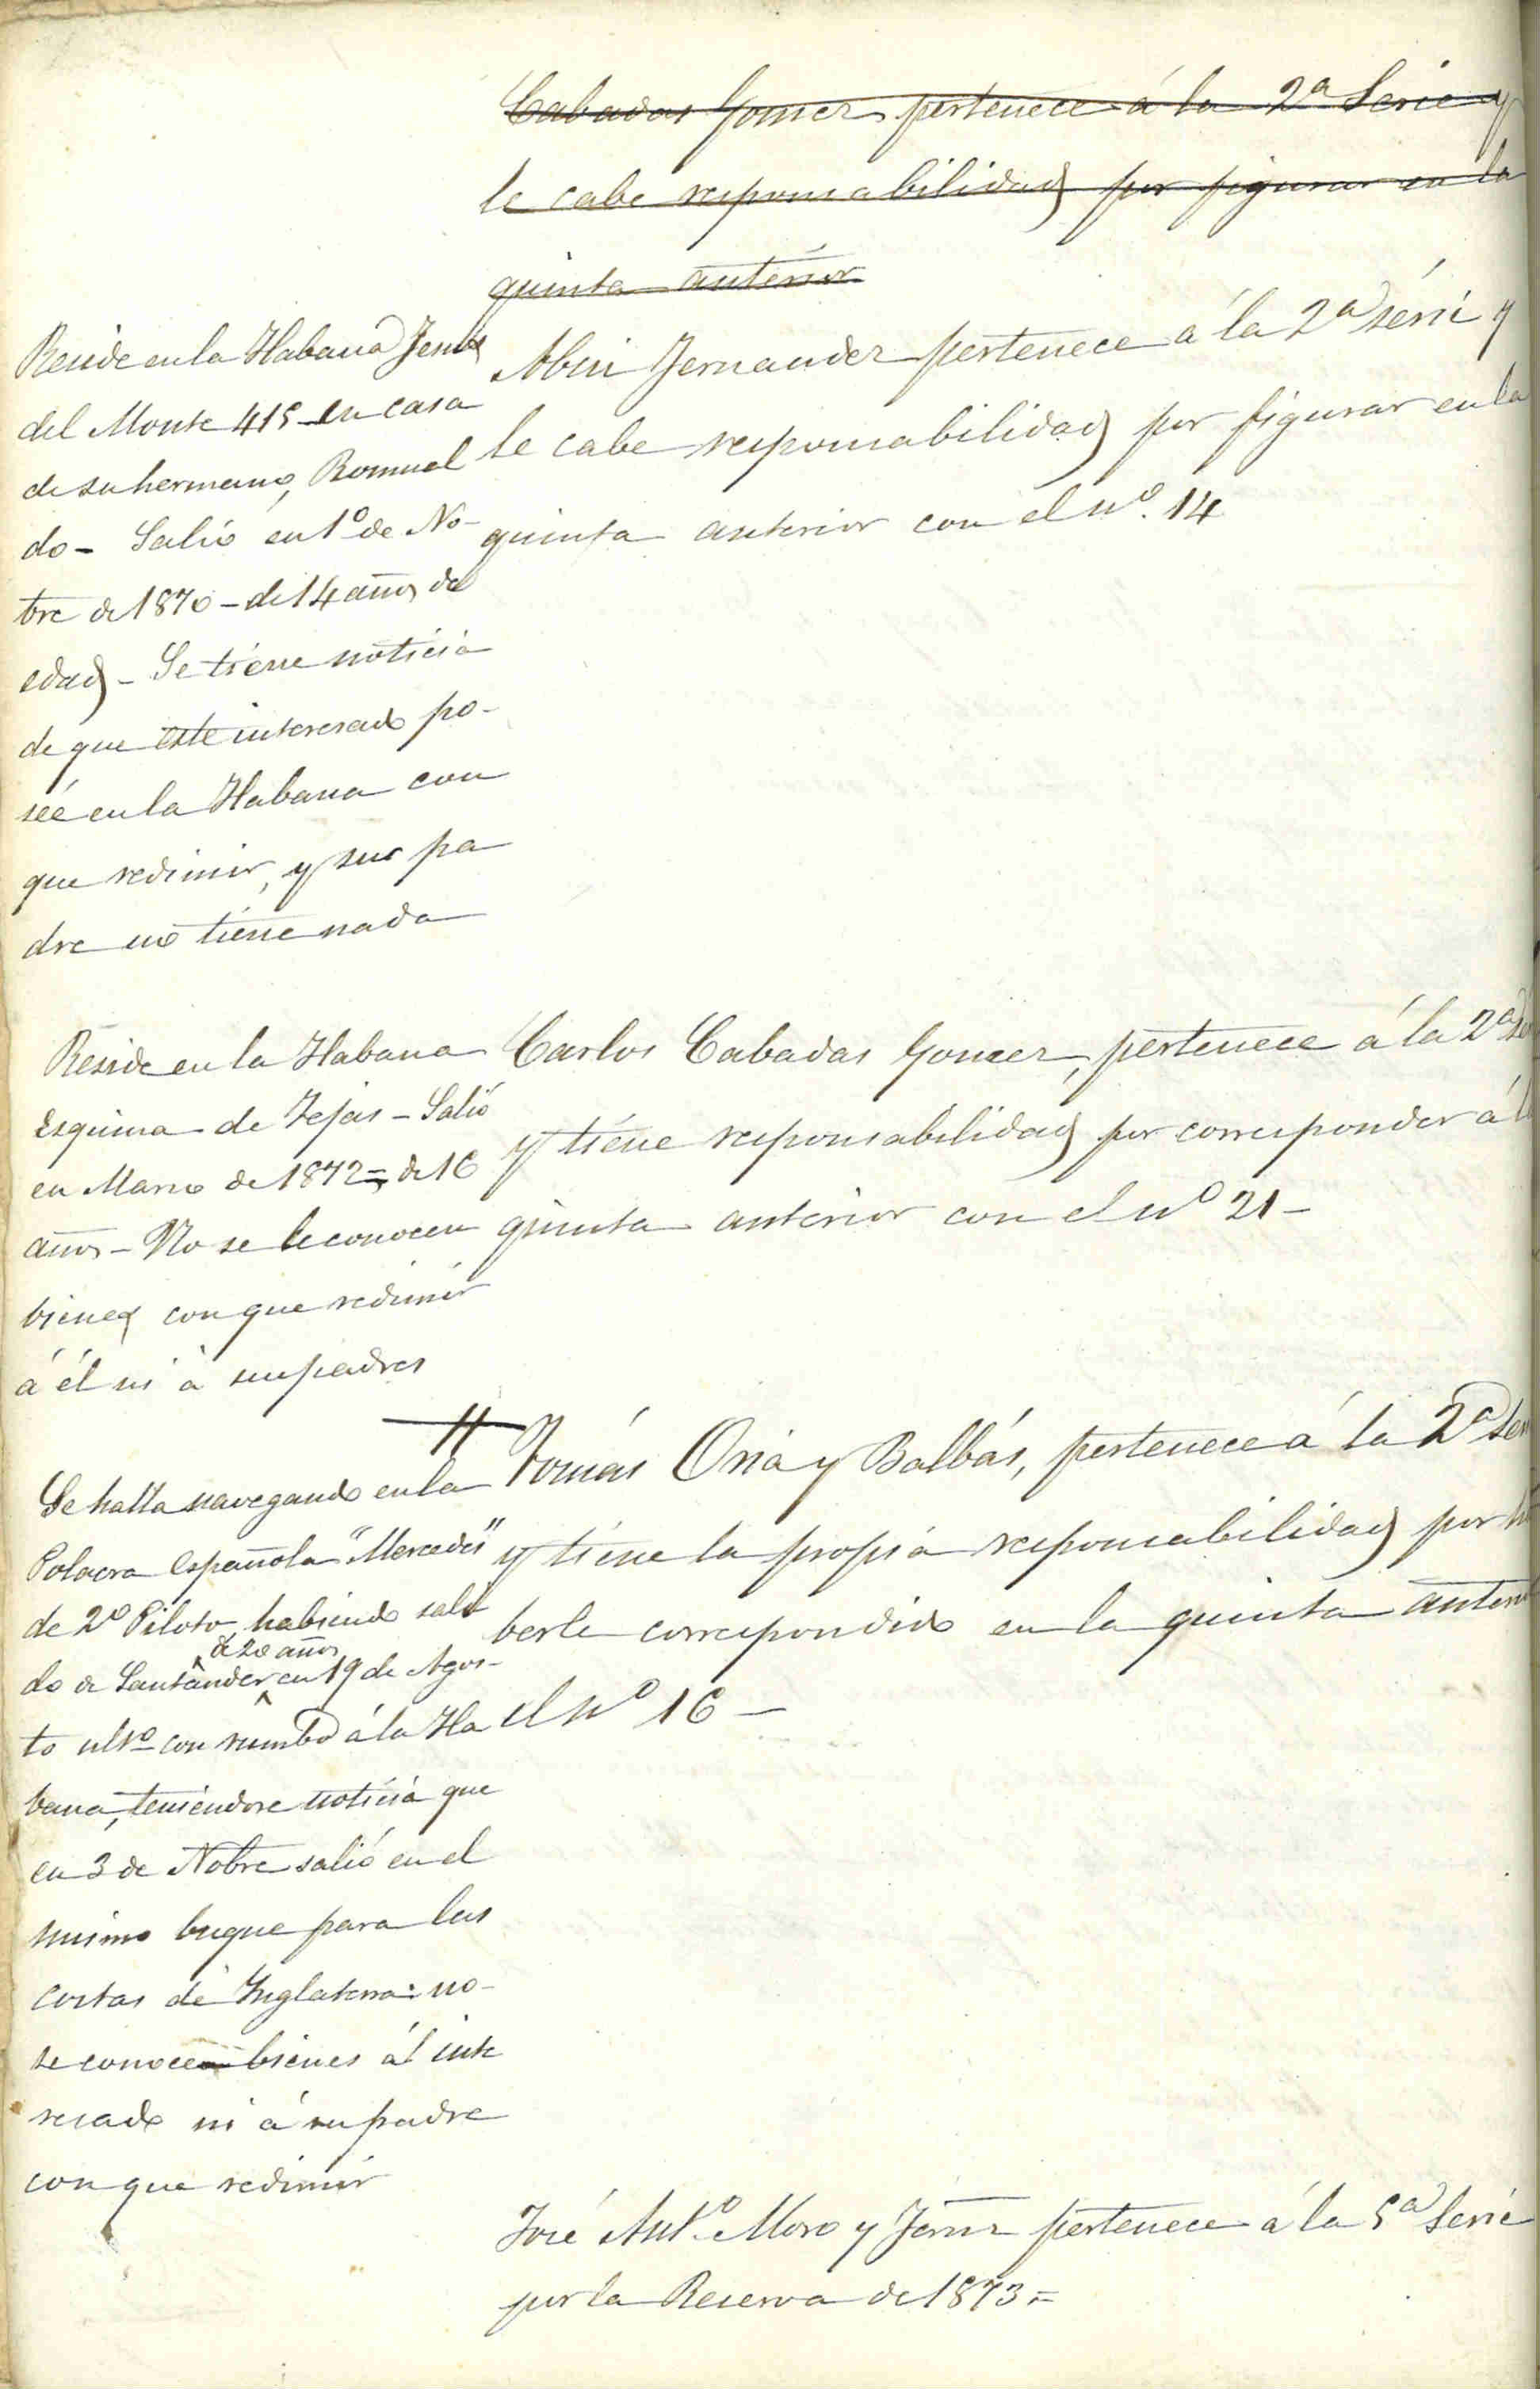 Cabadas Gomez pertenece á la 2ª Serie y
le cabe responsabilidad por figurar en la
quinta anterior
Reside en la Habana Jesus
del Monte 415 en casa
de su hermano, Romual
do - Salió en 1º de No-
bre de 1870 - de 14 años de
edad - Se tiene noticia
de que este interesado po-
séé en la Habana con
que redimir, y sus pa
dre no tiene nada
Fernandez pertenece á la 2ª série y
le cabe responsabilidad por figurar en la
quinta anterior con el nº. 14
Reside en la Habana
Esquina de Tejas - Salió
en Marzo de 1872 = de 16
años - No se le conocen
bienes con que redimir
á él ni á sus padres
Carlos Cabadas Gomez, pertenece á la 2ª
y tiene responsabilidad por corresponder á
quinta anterior con el nº 21 -
Se halla navegando en la
Polacra española "Mercedes"
de 2º Piloto, habiendo sali
de 20 años
do de Santander en 19 de Agos-
to ultº con rumbo á la Ha
bana, teniendose noticia que
en 3 de Nobre salió en el
mismo buque para las
costas de Inglaterra: no
se conocen bienes ál inte
resado ni á su padre
con que redimir
Tomás Oria y Balbás, pertenece á la 2ª
y tiene la propia responsabilidad por
berle correspondido en la quinta
el nº 16 -
José Antº Moro y pertenece á la 5ª Serie
por la Reserva de 1873 =